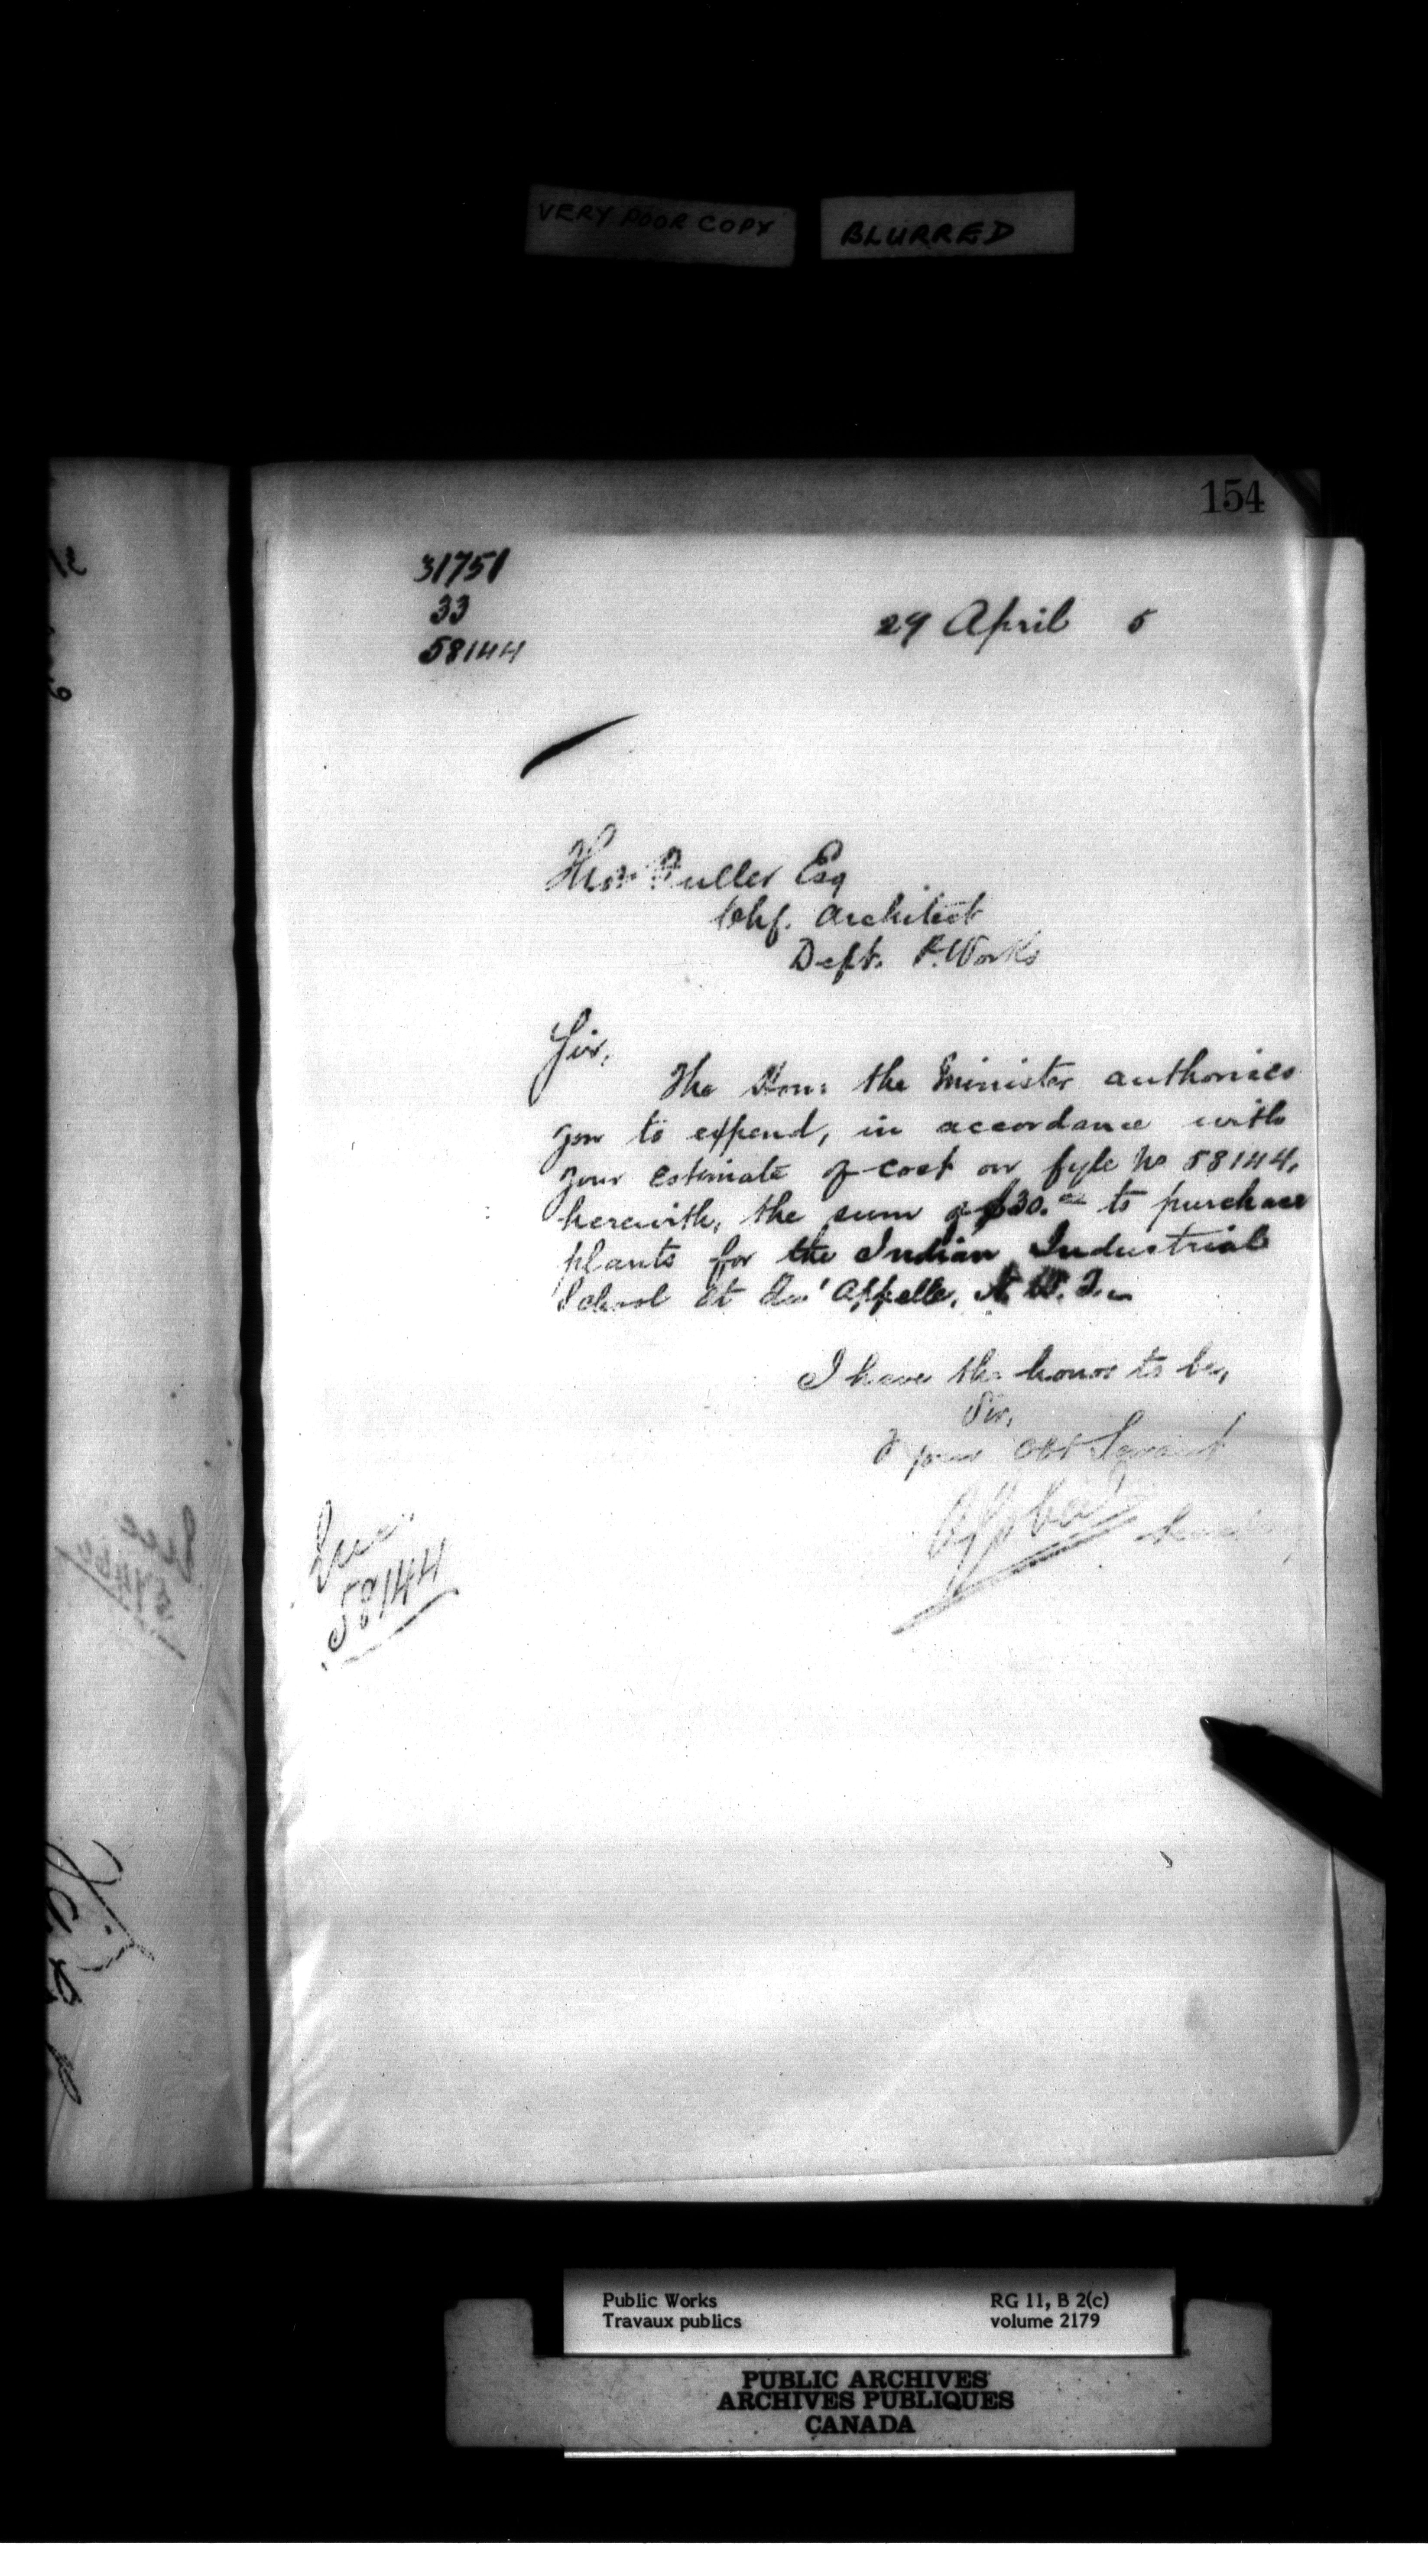 VERY POOR COPY
BLURRED
154
31751
33
58144
29 April 5
Thos Fuller Esq
Chf. Architect
Dept. P. Works
Sir,
The Hon: the Minister authorises
you to expend, in accordance with
your estimate of cost on fyle No 58144,
herewith, the sum of $30.00 to purchase
plants for the Indian Industrial
School at Qu'Appelle, N. W. T.
I have the honor to be,
Sir,
your Obt Servant
Enc.
58144
Public Works
Travaux publics
RG 11, B 2(c)
volume 2179
PUBLIC ARCHIVES
ARCHIVES PUBLIQUES
CANADA